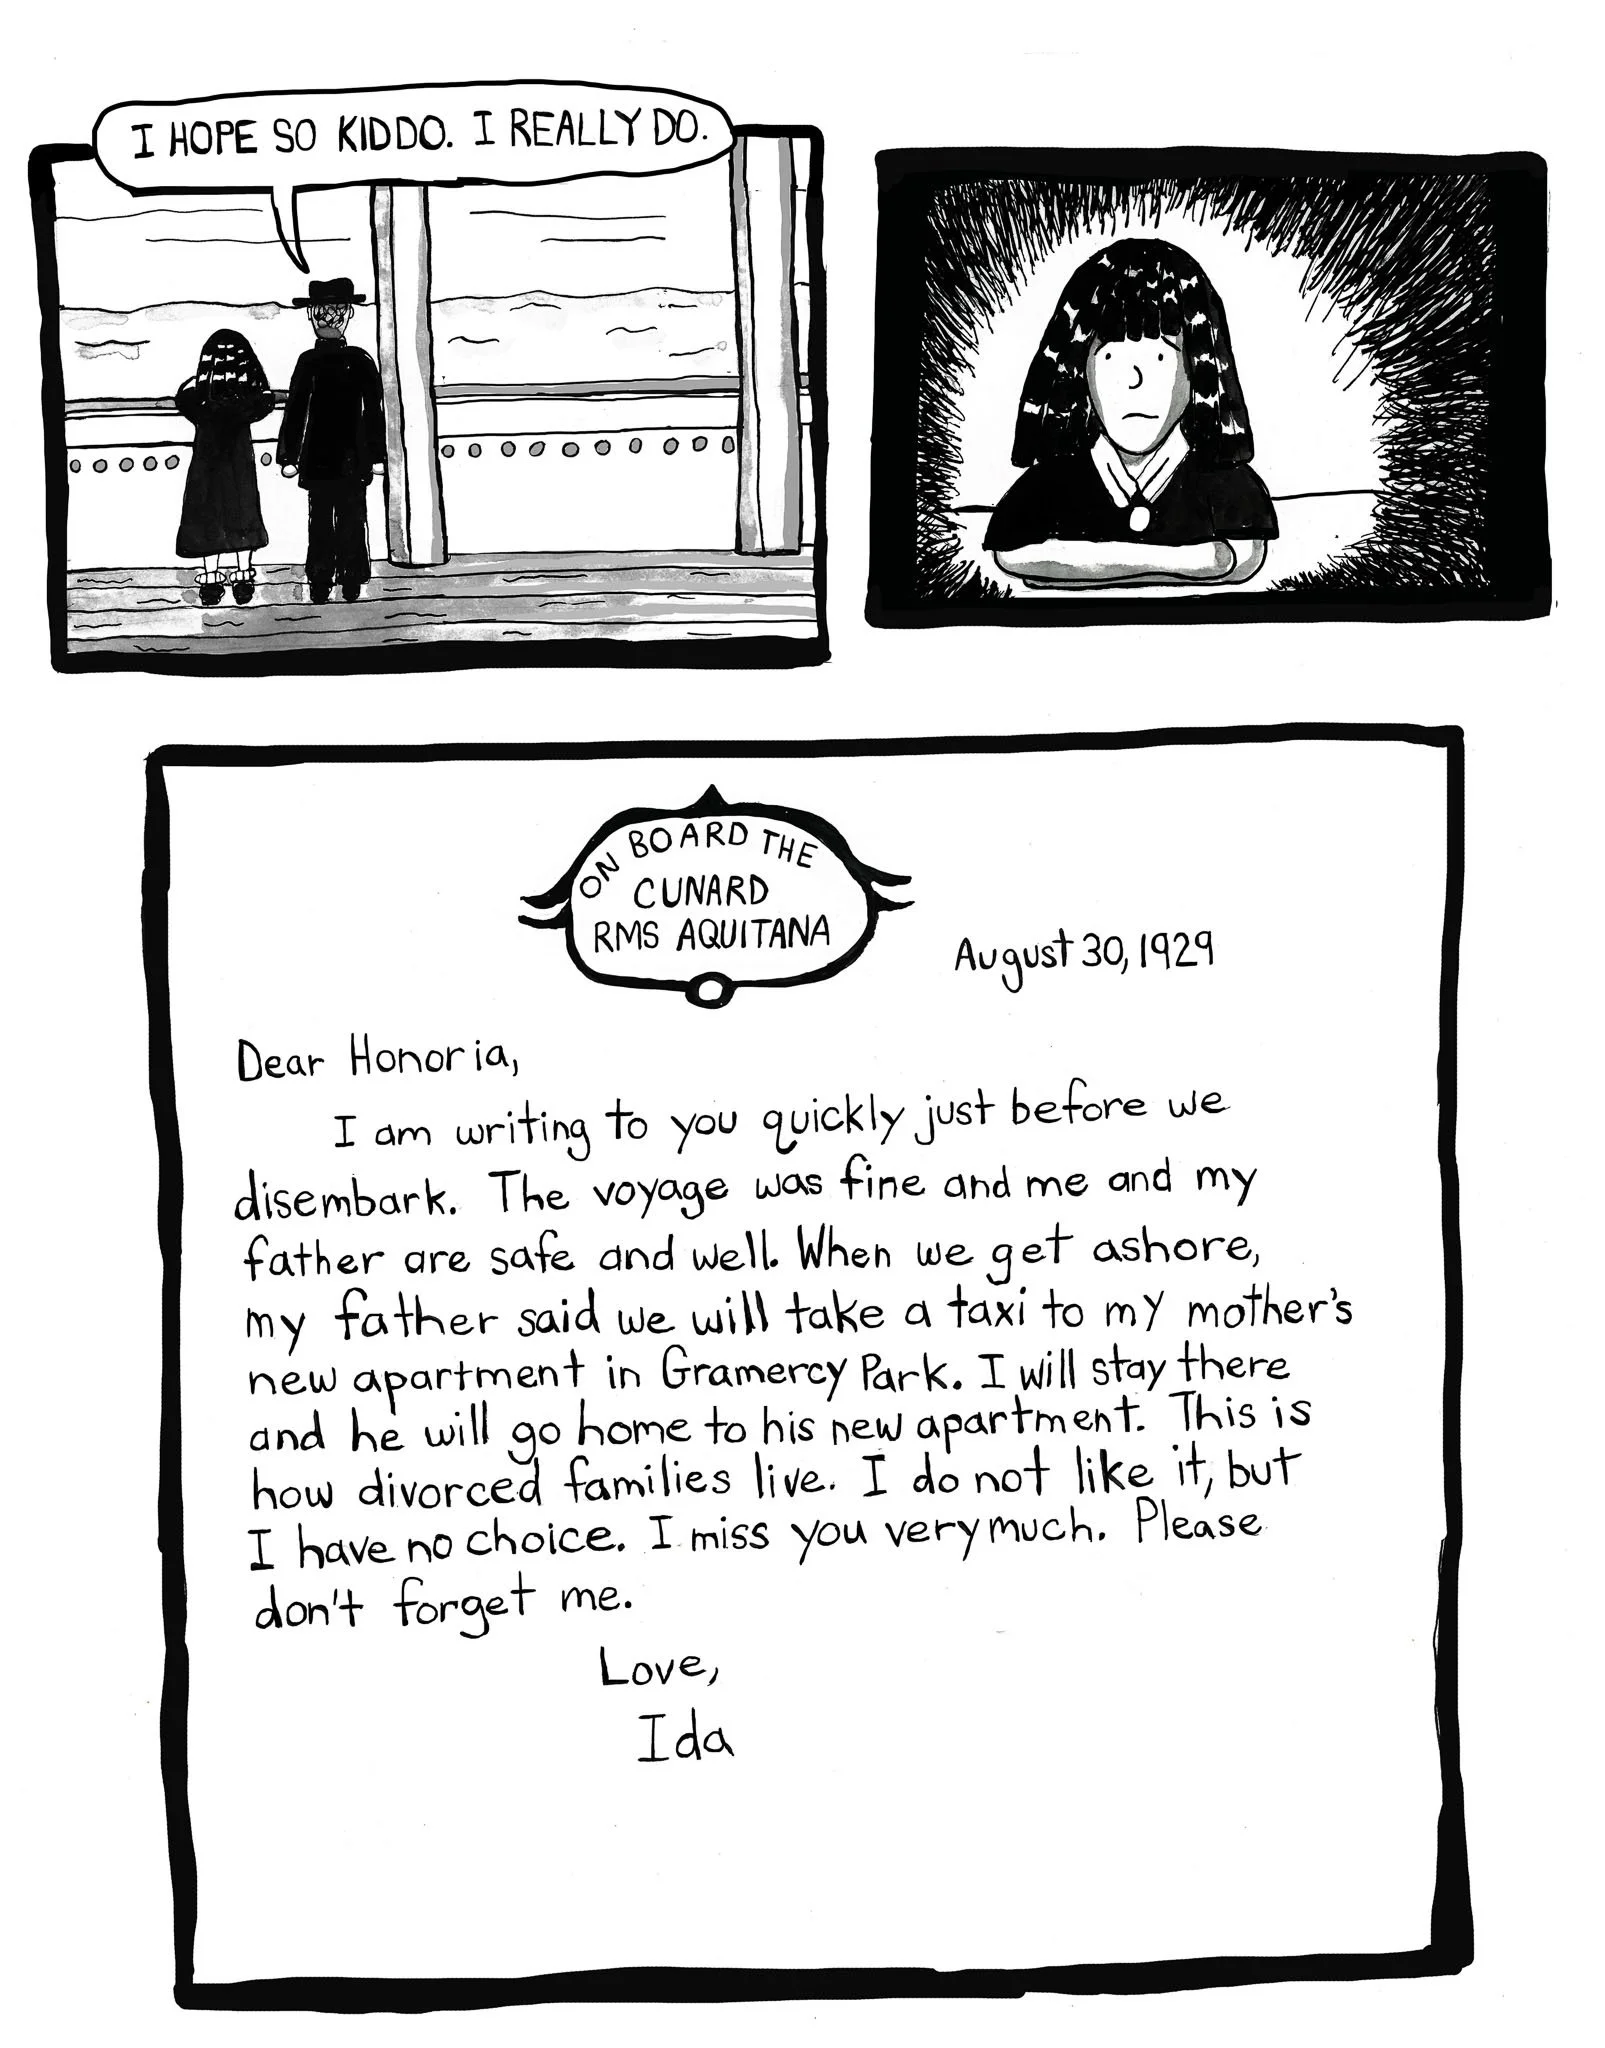 I HOPE SO KIDDO. I REALLY DO.
ON BOARD THE
CUNARD
RMS AQUITANA
August 30, 1929
Dear Honoria,
I am writing to you quickly just before we
disembark. The voyage was fine and me and my
father are safe and well. When we get ashore,
my father said we will take a taxi to my mother's
new apartment in Gramercy Park. I will stay there
and he will go home to his new apartment. This is
how divorced families live. I do not like it, but
I have no choice. I miss you very much. Please
don't forget me.
Love,
Ida